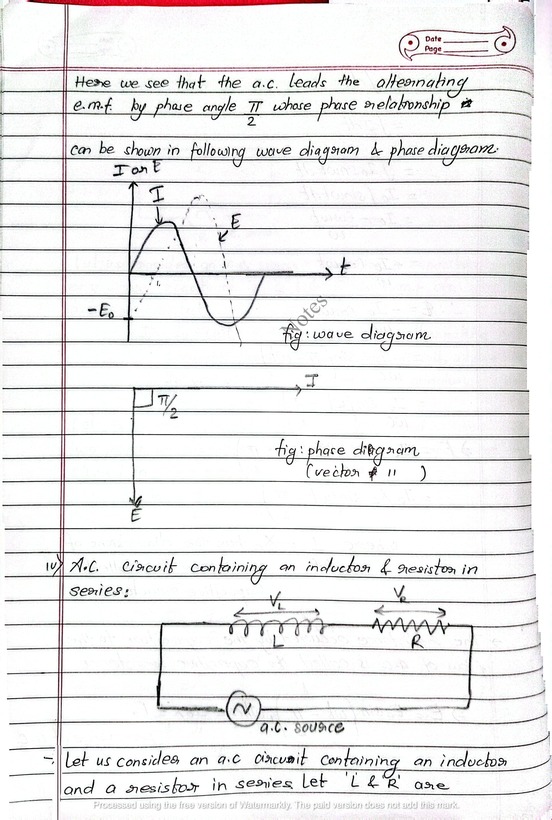 Date
Page
Here we see that the a.c. leads the alternating
e.m.f. by phase angle π/2 whose phase relationship
can be shown in following wave diagram & phase diagram.
I or E
I
E
t
-E₀
Notes
fig: wave diagram
I
π/2
fig: phase diagram
(vector " )
E
iv) A.C. circuit containing an inductor & resistor in
series:
V_L V_R
L R
a.c. source
→ Let us consider an a.c circuit containing an inductor
and a resistor in series. Let 'L & R' are
Processed using the free version of Watermarkly. The paid version does not add this mark.